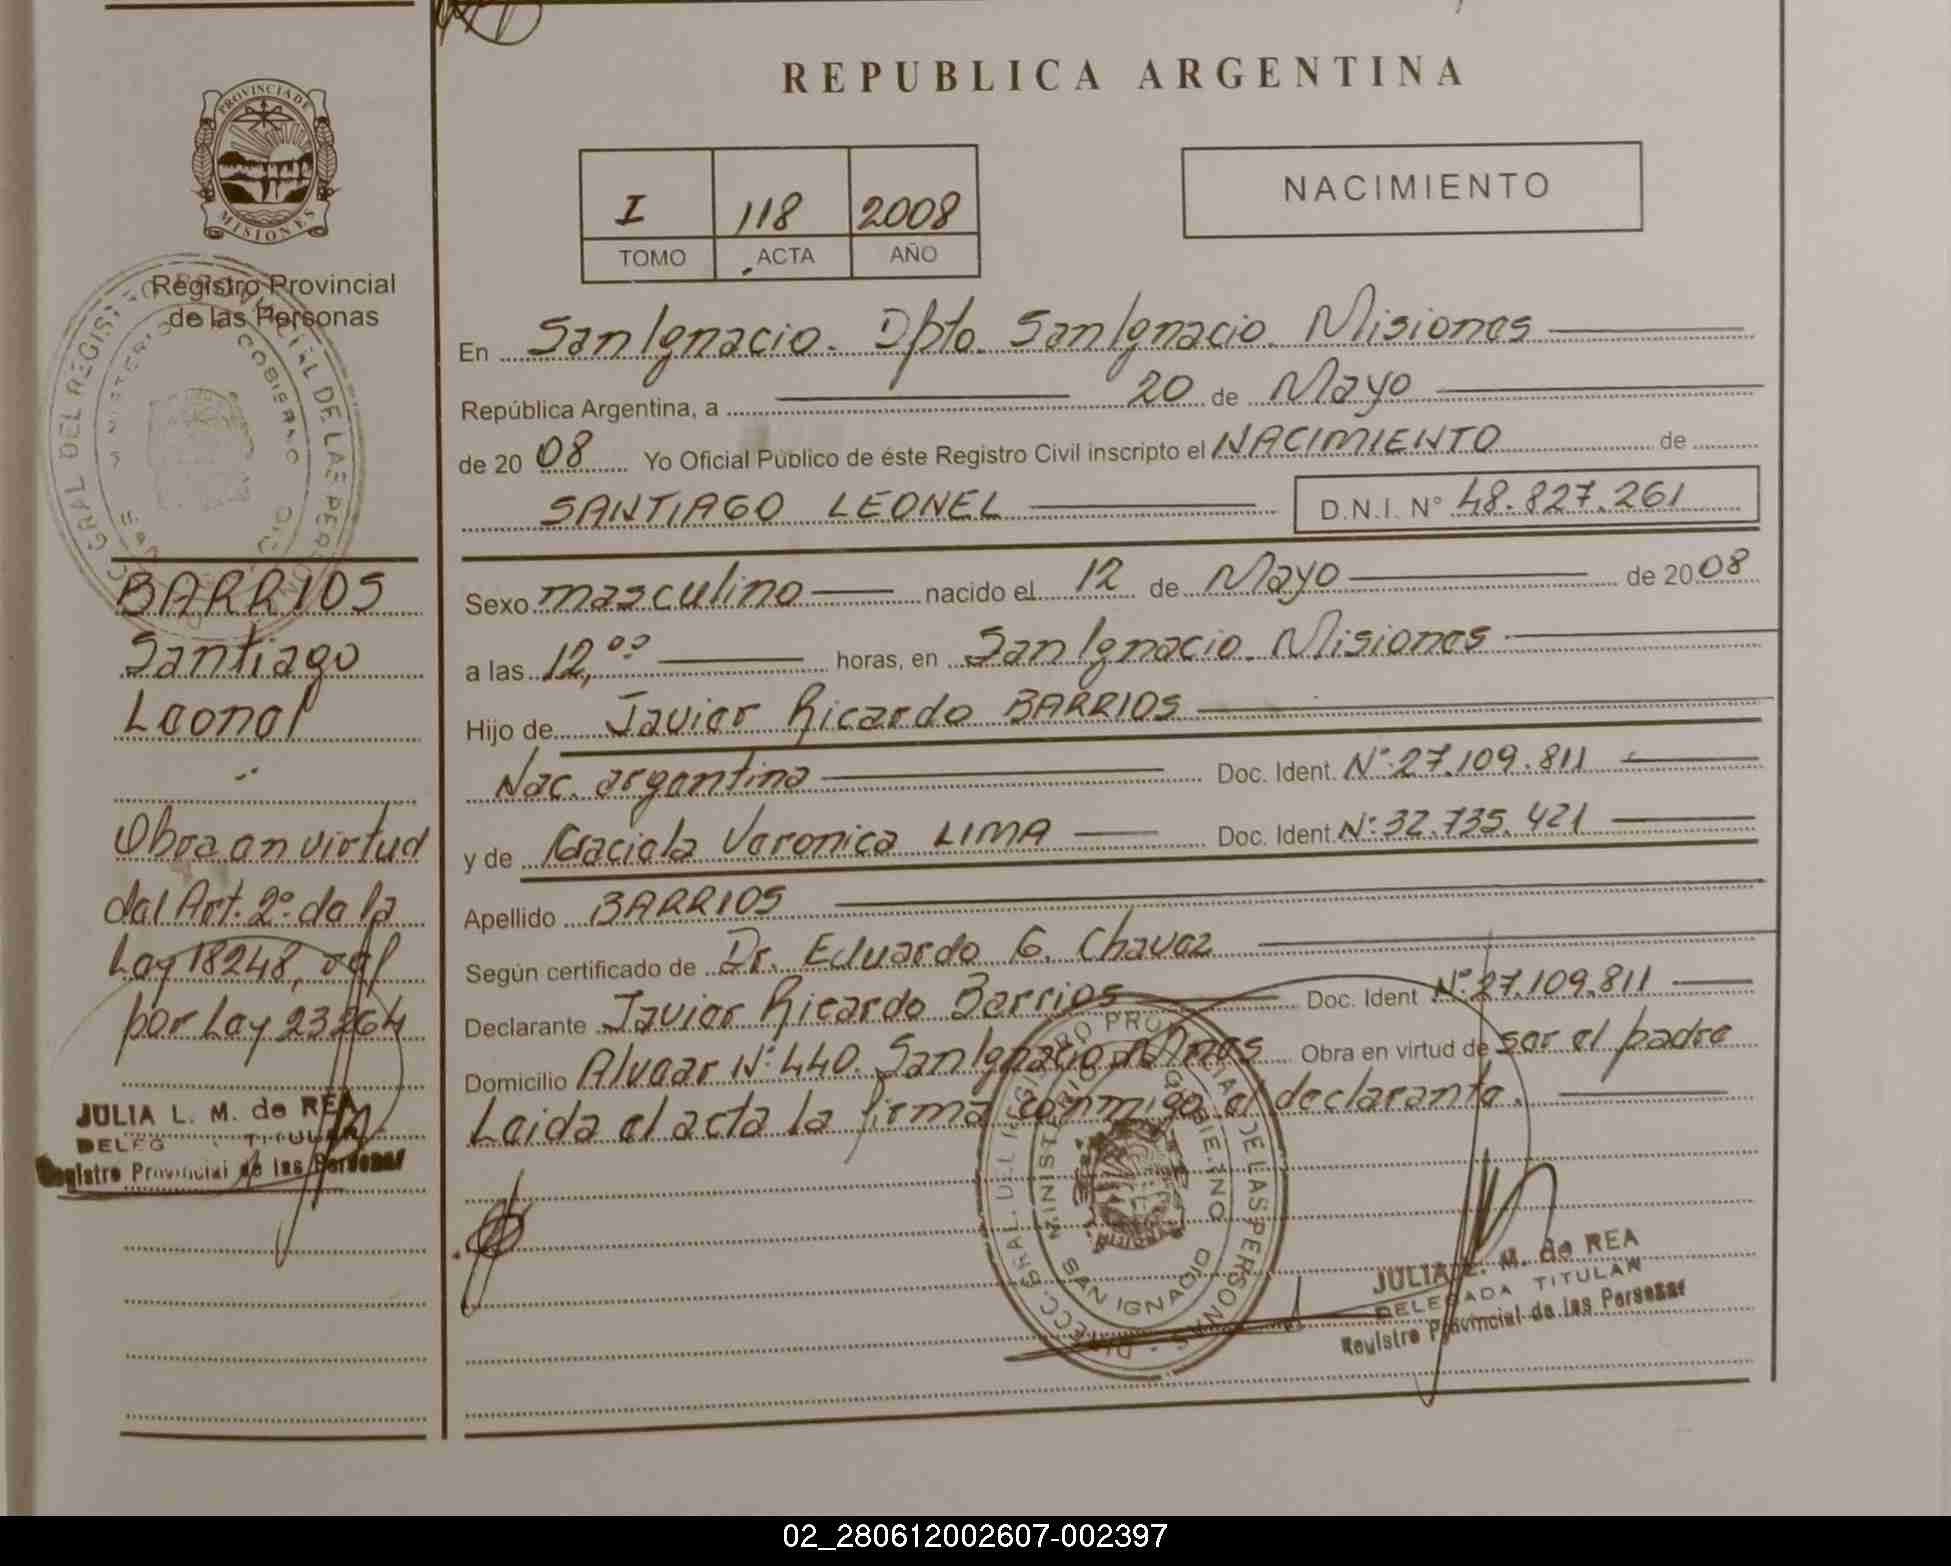 REPUBLICA ARGENTINA
PROVINCIA DE
MISIONES
Registro Provincial
de las Personas
I 118 2008
TOMO ACTA AÑO
NACIMIENTO
En San Ignacio. Dpto. San Ignacio. Misiones
República Argentina, a 20 de Mayo
de 20 08 Yo Oficial Público de éste Registro Civil inscripto el NACIMIENTO de
SANTIAGO LEONEL D.N.I. N° 48.827.261
Sexo masculino nacido el 12 de Mayo de 20 08
a las 12,°° horas, en San Ignacio. Misiones
Hijo de Javier Ricardo BARRIOS
Nac. argentina Doc. Ident. N°:27.109.811
y de Graciela Veronica LIMA Doc. Ident. N°:32.735.421
Apellido BARRIOS
Según certificado de Dr. Eduardo G. Chavez
Declarante Javier Ricardo Barrios Doc. Ident N°:27.109.811
Domicilio Alvear N°:440. San Ignacio Mnes Obra en virtud de ser el padre
Leida el acta la firma conmigo el declarante.
BARRIOS
Santiago
Leonel
Obra en virtud
del Art. 2° de la
Ley 18248,
por Ley 23264
JULIA L. M. de REA
TITULAR
Registro Provincial de las Personas
MINISTERIO GOBIERNO
SAN IGNACIO
JULIA L. M. de REA
DELEGADA TITULAR
Registro Provincial de las Personas
02_280612002607-002397